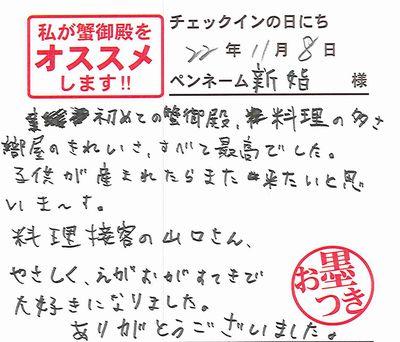 私が蟹御殿を
オススメ
します!!
チェックインの日にち
22年11月8日
ペンネーム 新婚 様
初めての蟹御殿、料理の多さ
部屋のきれいさ、すべて最高でした。
子供が産まれたらまた来たいと思
いまーす。
料理接客の山口さん、
やさしく、えがおがすてきで
大好きになりました。
ありがとうございました。
お墨つき